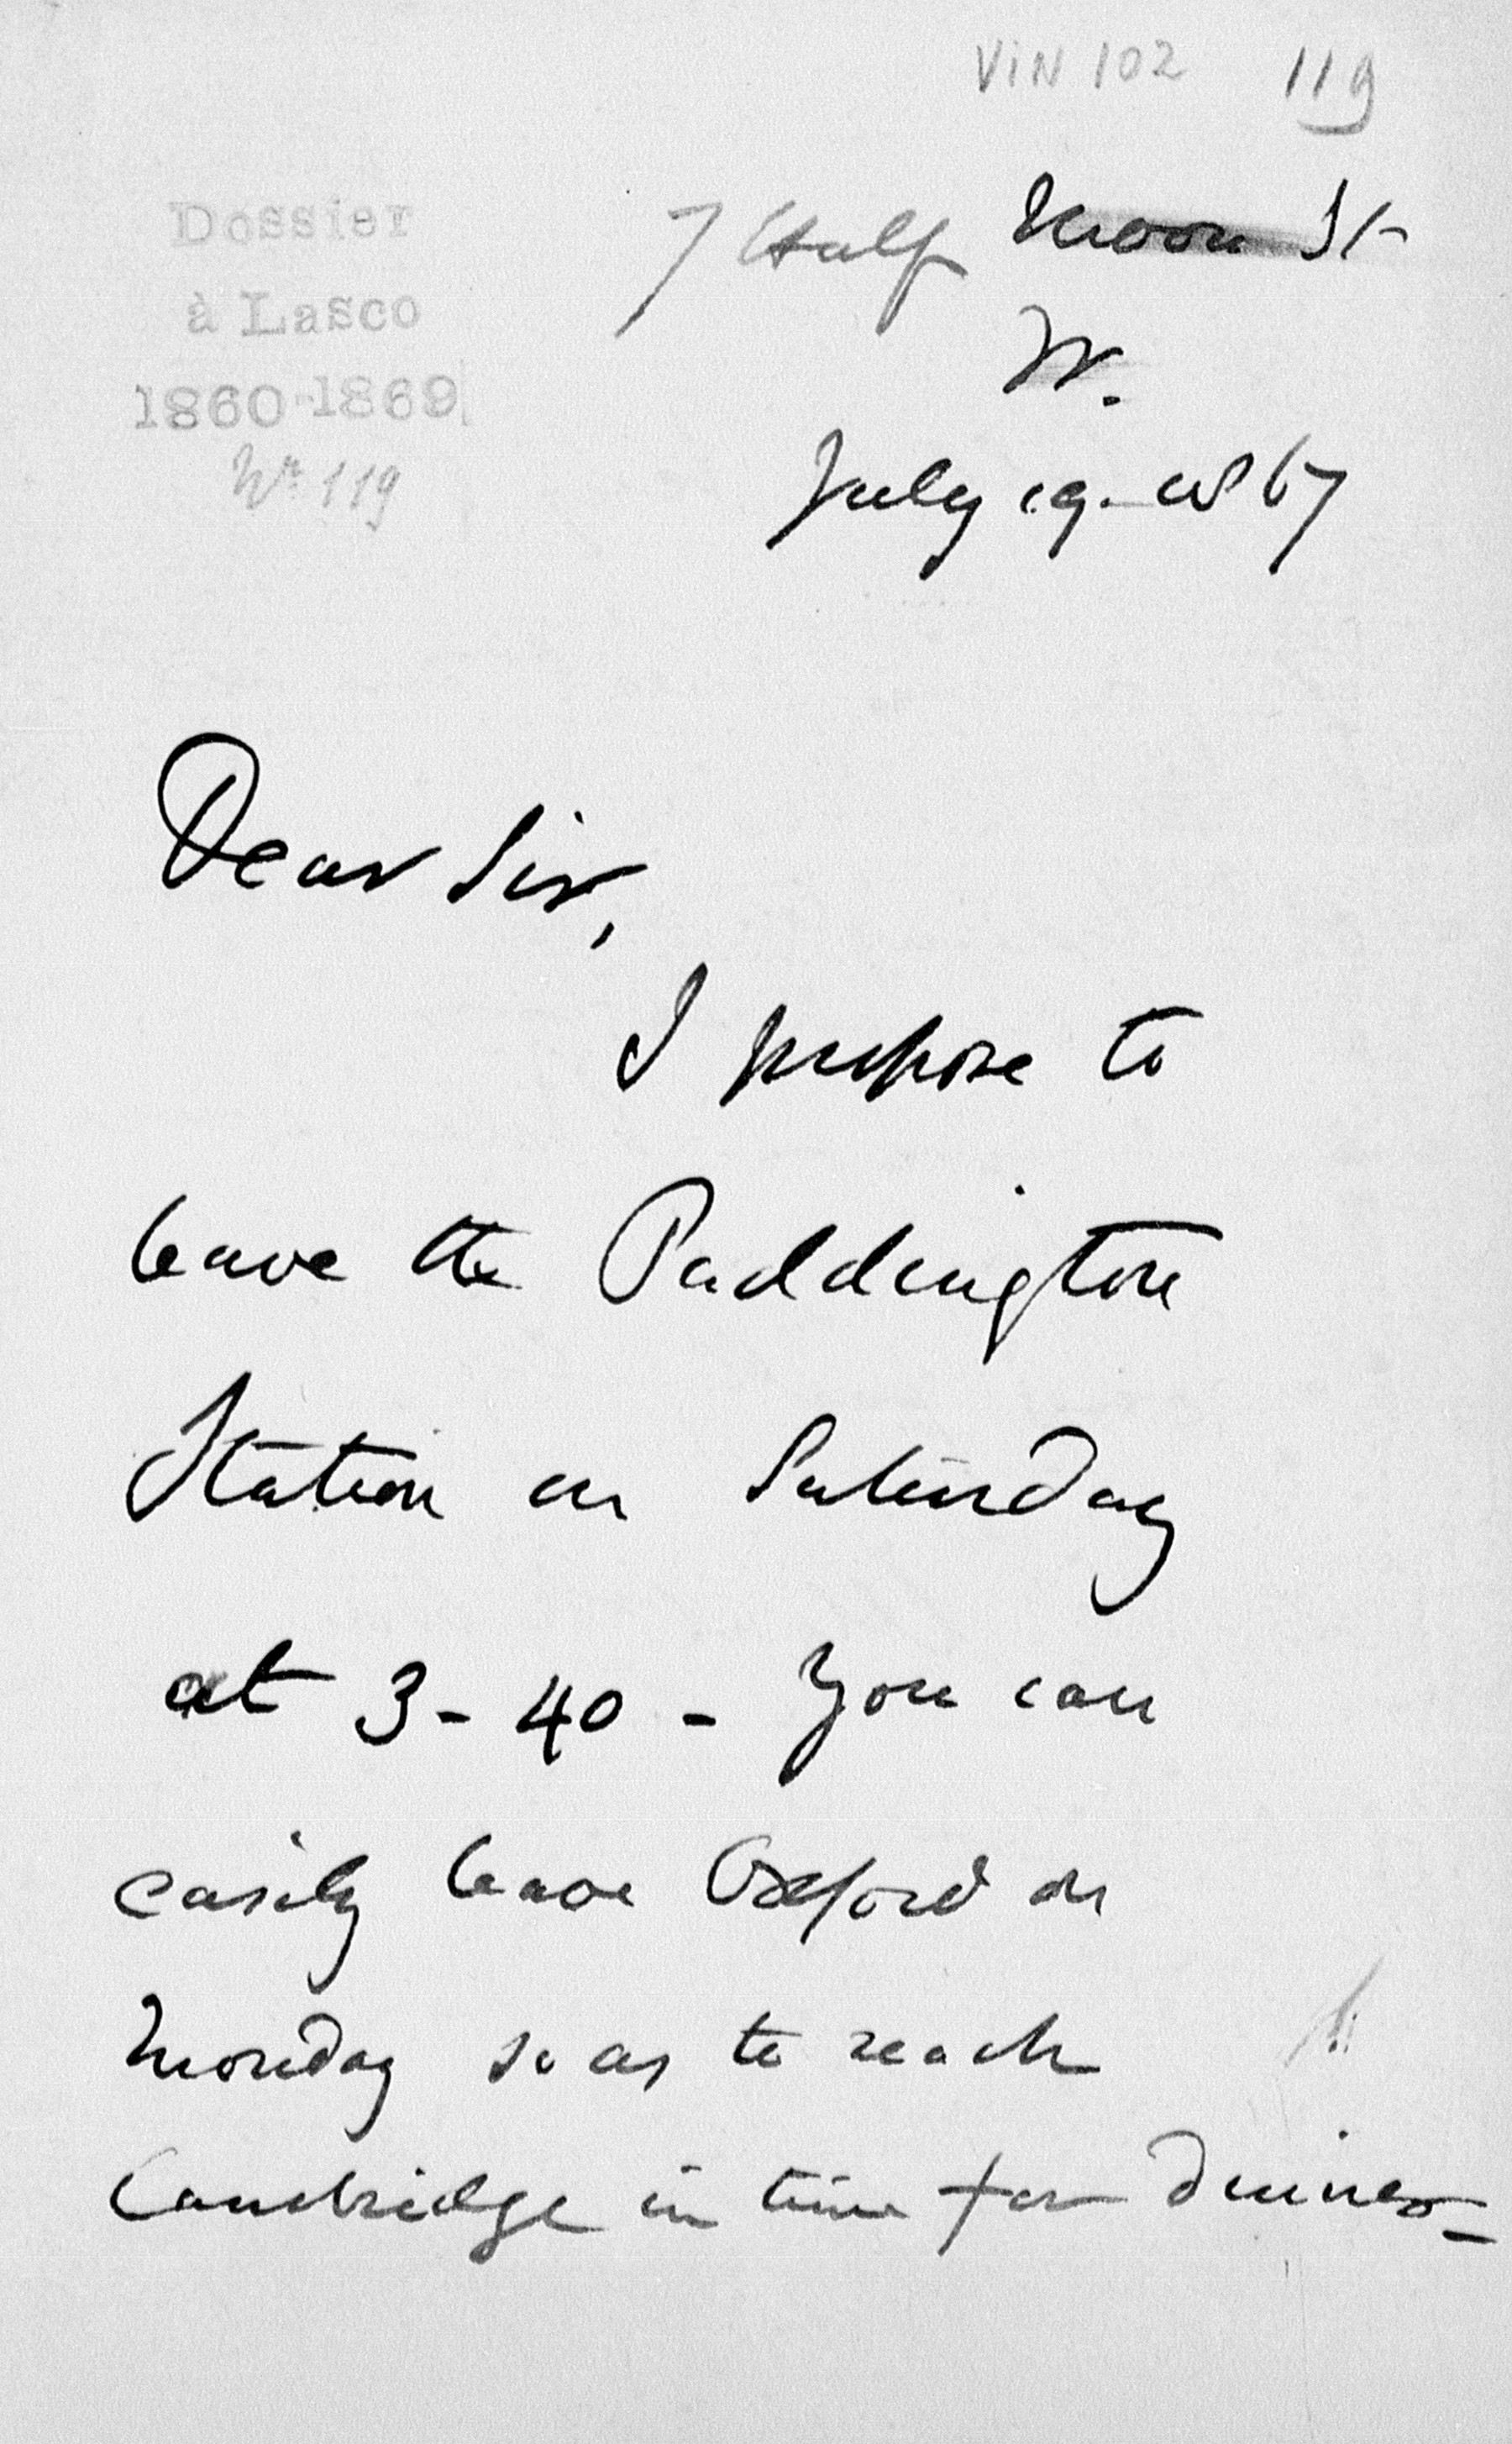 VIN 102 119
Dossier
à Lasco
1860-1869
Nº 119
7 Half Moon St
W.
July 19. 1867
Dear Sir,
I propose to
leave the Paddington
Station on Saturday
at 3-40 - You can
easily leave Oxford on
Monday so as to reach
Cambridge in time for dinner_